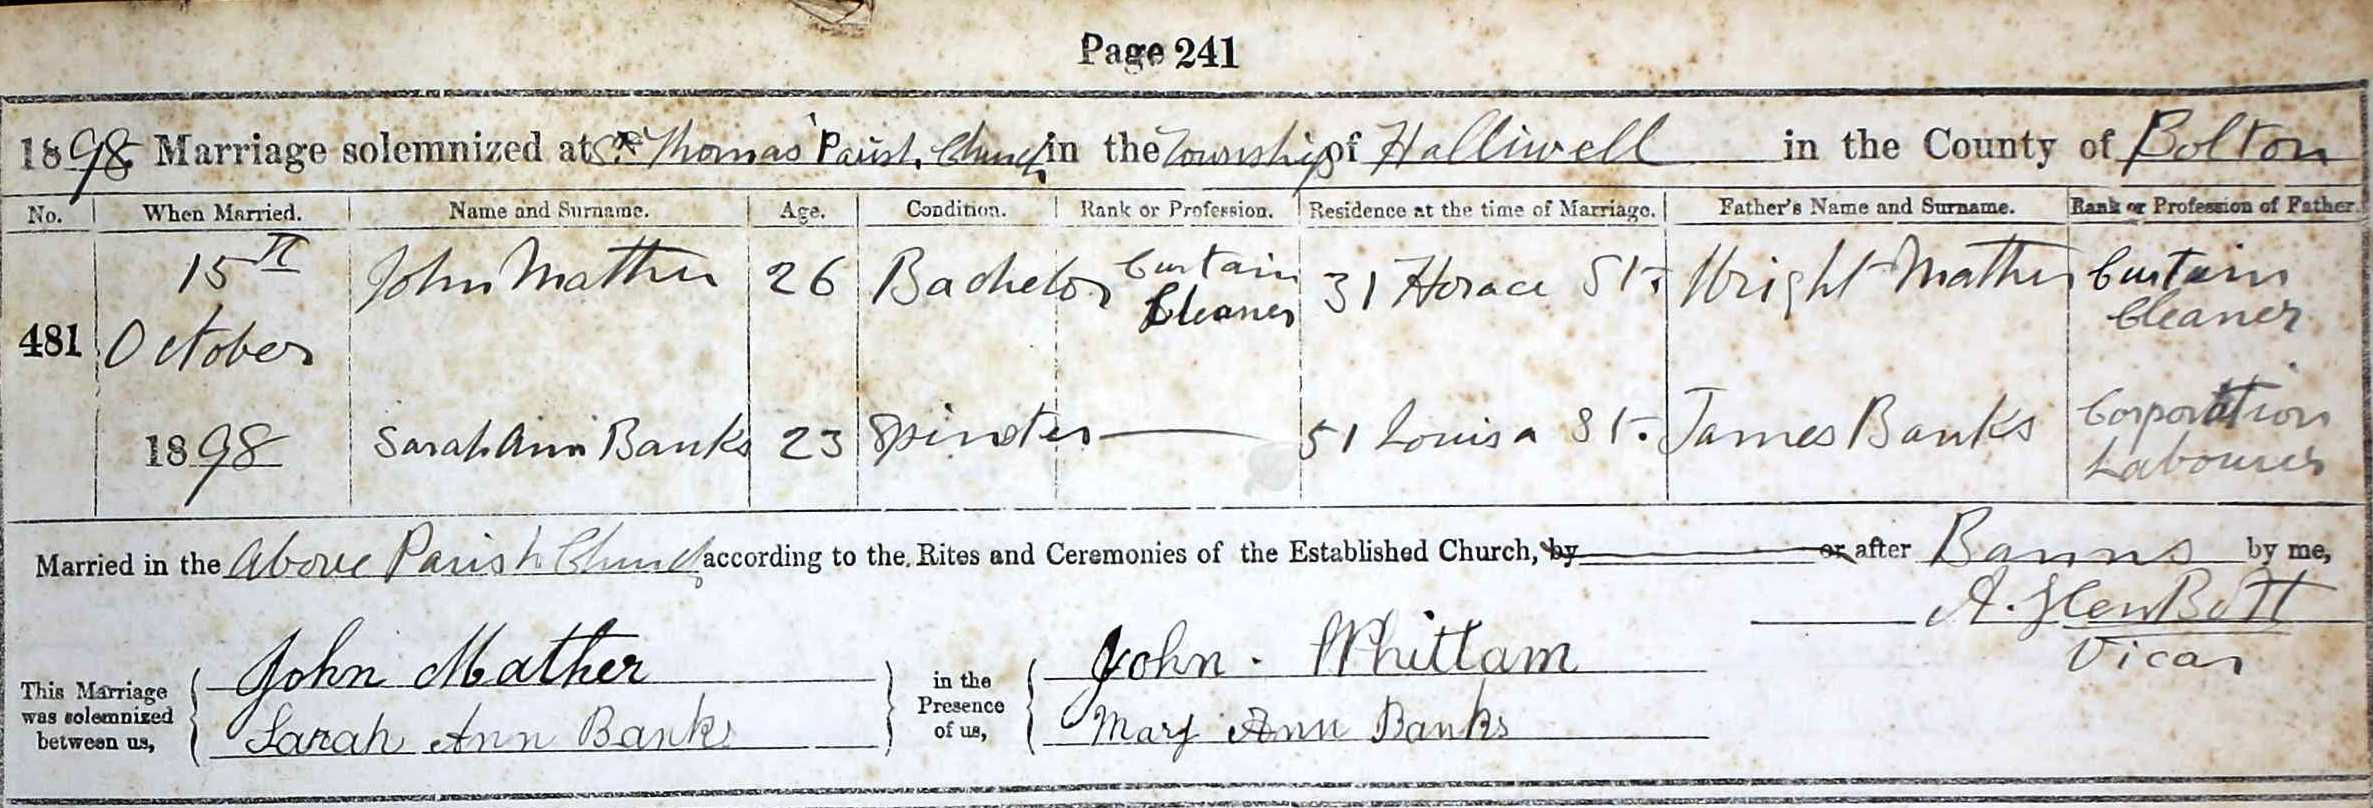 Page 241
1898 Marriage solemnized at St Thomas' Parish Church in the Township of Halliwell in the County of Bolton
No. When Married. Name and Surname. Age. Condition. Rank or Profession. Residence at the time of Marriage. Father's Name and Surname. Rank or Profession of Father.
481 15th October 1898
John Mather 26 Bachelor Curtain Cleaner 31 Horace St. Wright Mather Curtain Cleaner
Sarah Ann Banks 23 Spinster — 51 Louisa St. James Banks Corporation Labourer
Married in the above Parish Church according to the Rites and Ceremonies of the Established Church, by or after Banns by me,
A. Glen Bott
Vicar
This Marriage was solemnized between us, John Mather
Sarah Ann Banks
in the Presence of us, John Whittam
Mary Ann Banks